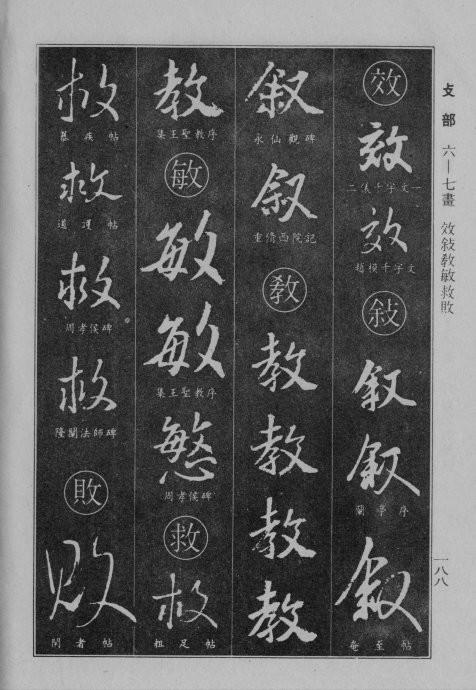 攴部 六—七畫 效敍教敏救敗
一八八
效
效
二儀千字文
效
趙模千字文
敍
叙
叙
蘭亭序
叙
奄至帖
叙
永仙觀碑
叙
重脩西院記
教
教
教
教
教
教
集王聖教序
敏
敏
敏
集王聖教序
慜
周孝侯碑
救
救
粗足帖
救
暮疾帖
救
道護帖
救
周孝侯碑
救
隆闡法師碑
敗
敗
閏者帖